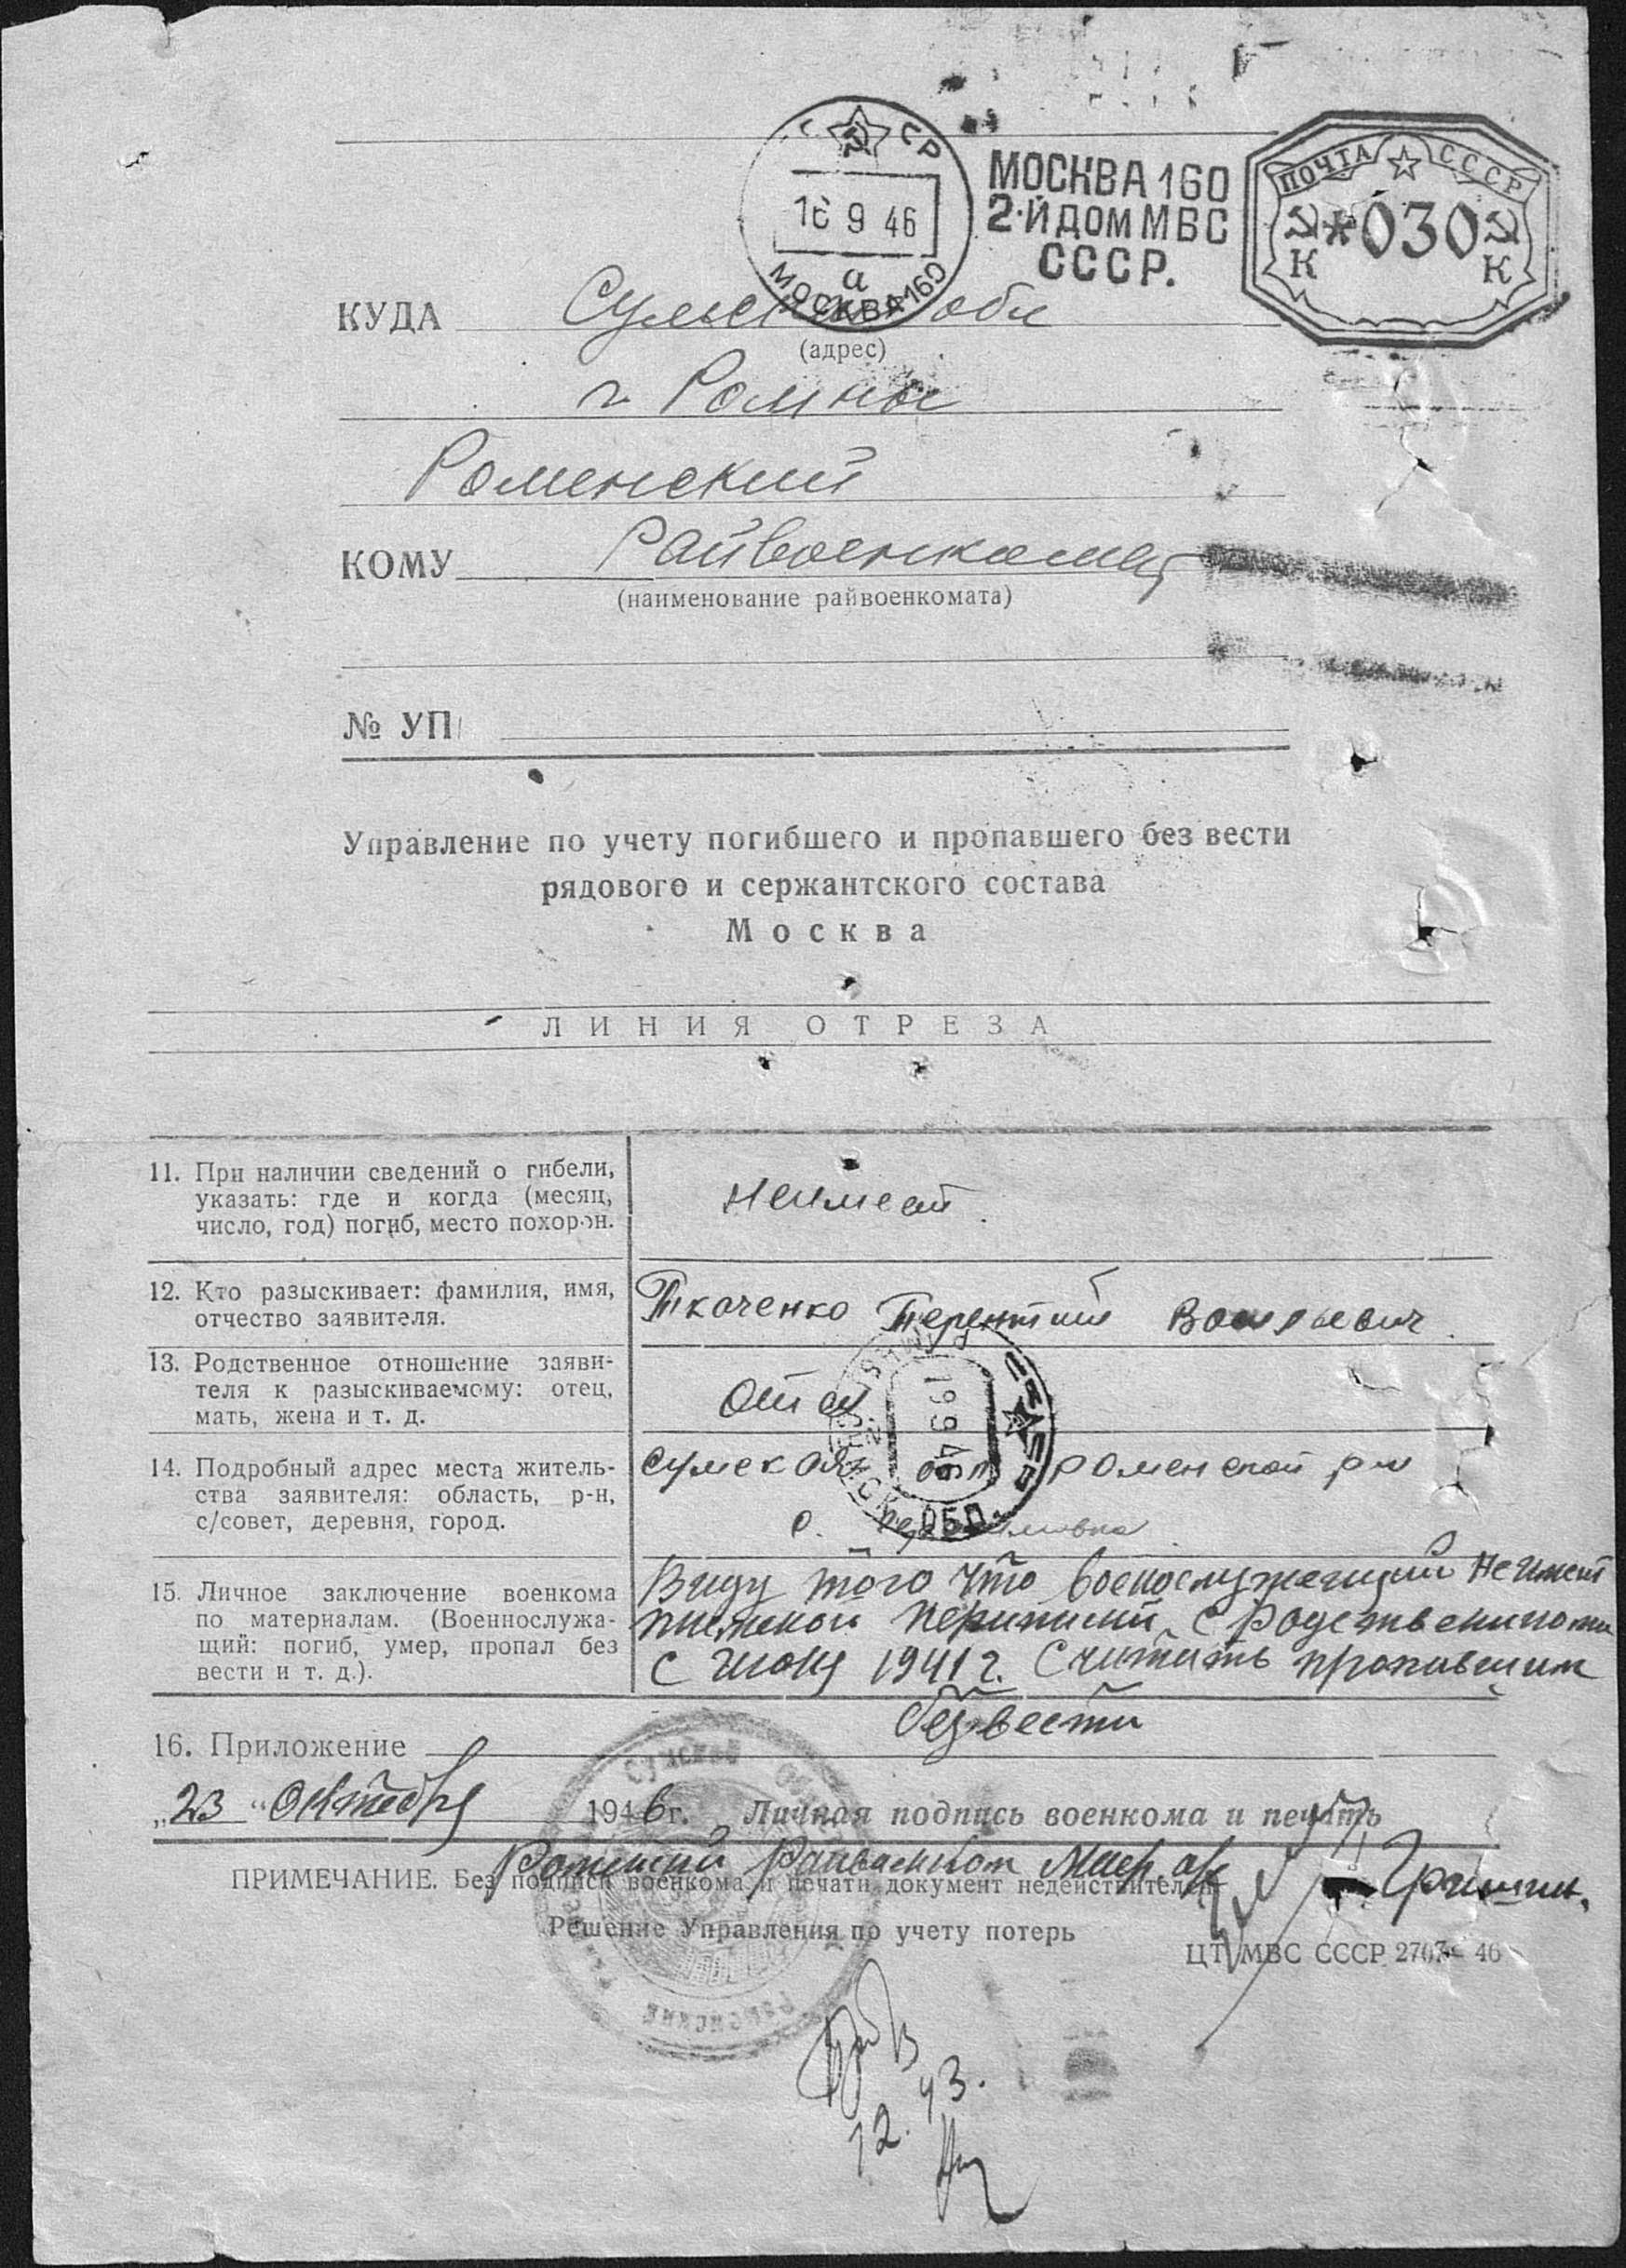 СР
16 9 46
а
МОСКВА 160
МОСКВА 160
2-Й ДОМ МВС
СССР.
ПОЧТА СССР
*030
К К
КУДА Сумская обл
(адрес)
г Ромны
Роменский
КОМУ Райвоенкомат
(наименование райвоенкомата)
№ УП
Управление по учету погибшего и пропавшего без вести
рядового и сержантского состава
Москва
ЛИНИЯ ОТРЕЗА
11. При наличии сведений о гибели,
указать: где и когда (месяц,
число, год) погиб, место похорон.
Неимеет.
12. Кто разыскивает: фамилия, имя,
отчество заявителя.
Ткаченко Терентий Васильевич
13. Родственное отношение заяви-
теля к разыскиваемому: отец,
мать, жена и т. д.
Отец
19 9 46
ОБЛ.
14. Подробный адрес места житель-
ства заявителя: область, р-н,
с/совет, деревня, город.
Сумская обл Роменской р-н
с.
15. Личное заключение военкома
по материалам. (Военнослужа-
щий: погиб, умер, пропал без
вести и т. д.).
Виду того что военослужащий Неимеет
писмской с Родственниками
с 1941 г. Считать пропавшим
безвести
16. Приложение
„23“ Октября 1946 г. Личная подпись военкома и печать
Роменский Райвоенком Маер
Гришин.
ПРИМЕЧАНИЕ. Без подписи военкома и печати документ недействителен
Решение Управления по учету потерь
ЦТ МВС СССР 2707—46
Сумская
Роменский
12. 43.